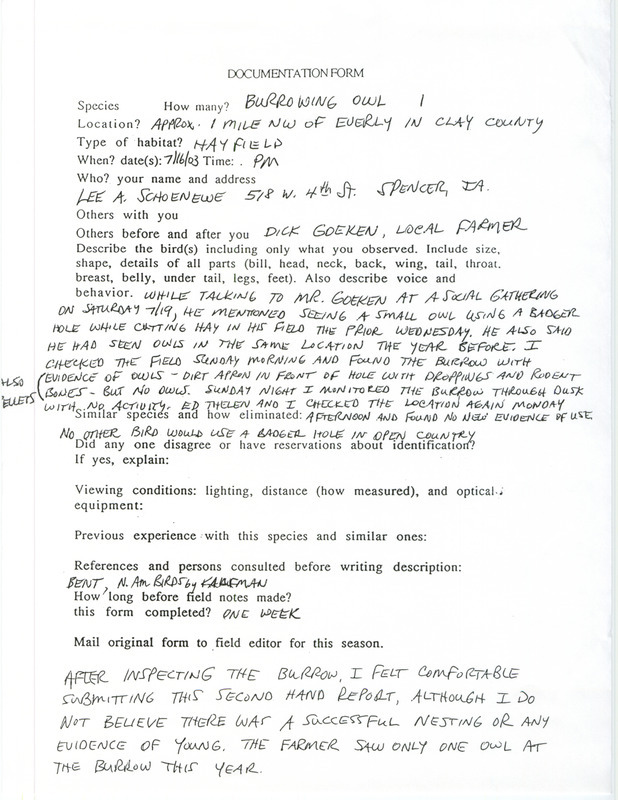 DOCUMENTATION FORM
Species How many? BURROWING OWL 1
Location? APPROX. 1 MILE NW OF EVERLY IN CLAY COUNTY
Type of habitat? HAYFIELD
When? date(s): 7/16/03 Time: . PM
Who? your name and address
LEE A. SCHOENEWE 518 W. 4th St. SPENCER, IA.
Others with you
Others before and after you DICK GOEKEN, LOCAL FARMER
Describe the bird(s) including only what you observed. Include size,
shape, details of all parts (bill, head, neck, back, wing, tail, throat,
breast, belly, under tail, legs, feet). Also describe voice and
behavior. WHILE TALKING TO MR. GOEKEN AT A SOCIAL GATHERING
ON SATURDAY 7/19, HE MENTIONED SEEING A SMALL OWL USING A BADGER
HOLE WHILE CUTTING HAY IN HIS FIELD THE PRIOR WEDNESDAY. HE ALSO SAID
HE HAD SEEN OWLS IN THE SAME LOCATION THE YEAR BEFORE. I
CHECKED THE FIELD SUNDAY MORNING AND FOUND THE BURROW WITH
ALSO (EVIDENCE OF OWLS - DIRT APRON IN FRONT OF HOLE WITH DROPPINGS AND RODENT
ELLETS BONES - BUT NO OWLS. SUNDAY NIGHT I MONITORED THE BURROW THROUGH DUSK
WITH NO ACTIVITY. ED THELEN AND I CHECKED THE LOCATION AGAIN MONDAY
Similar species and how eliminated: AFTERNOON AND FOUND NO NEW EVIDENCE OF USE.
NO OTHER BIRD WOULD USE A BADGER HOLE IN OPEN COUNTRY
Did any one disagree or have reservations about identification?
If yes, explain:
Viewing conditions: lighting, distance (how measured), and optical
equipment:
Previous experience with this species and similar ones:
References and persons consulted before writing description:
BENT, N. AM BIRDS by KAUFMAN
How long before field notes made?
this form completed? ONE WEEK
Mail original form to field editor for this season.
AFTER INSPECTING THE BURROW, I FELT COMFORTABLE
SUBMITTING THIS SECOND HAND REPORT, ALTHOUGH I DO
NOT BELIEVE THERE WAS A SUCCESSFUL NESTING OR ANY
EVIDENCE OF YOUNG. THE FARMER SAW ONLY ONE OWL AT
THE BURROW THIS YEAR.